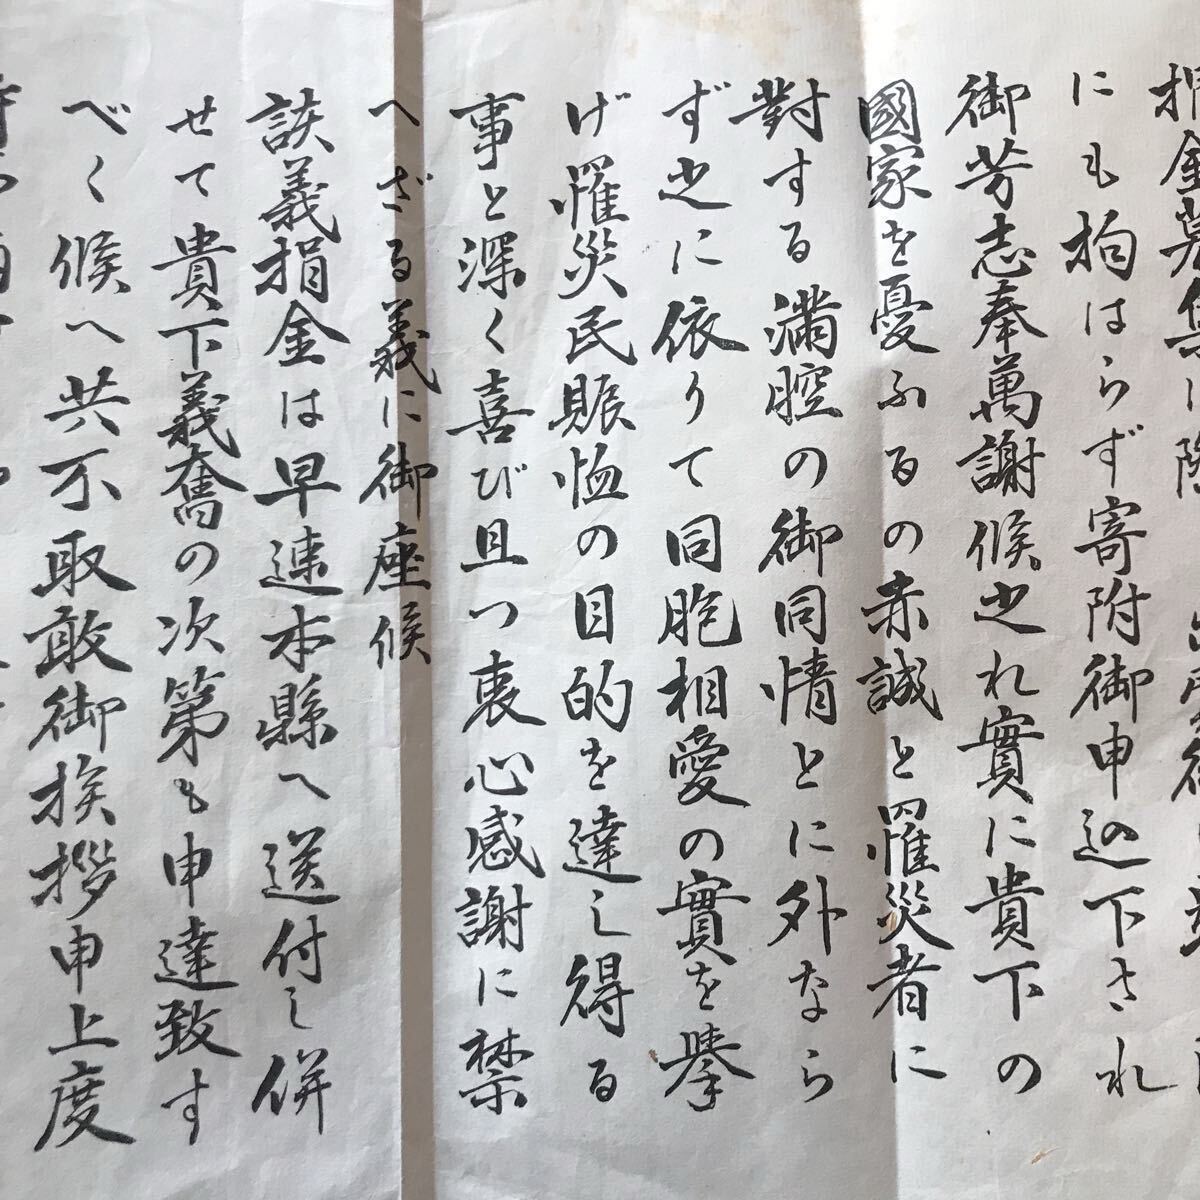 捐金募集に際
にも拘はらず寄附御申込下され
御芳志奉萬謝候之れ實に貴下の
國家を憂ふるの赤誠と罹災者に
對する滿腔の御同情とに外なら
ず之に依りて同胞相愛の實を擧
げ罹災民賑恤の目的を達し得る
事と深く喜び且つ衷心感謝に禁
へざる義に御座候
該義捐金は早速本縣へ送付し併
せて貴下義奮の次第も申達致す
べく候へ共不取敢御挨拶申上度